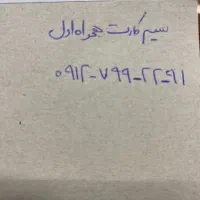 سیم کارت همراه اول
۰۹۱۲-۷۹۹-۲۲-۹۱